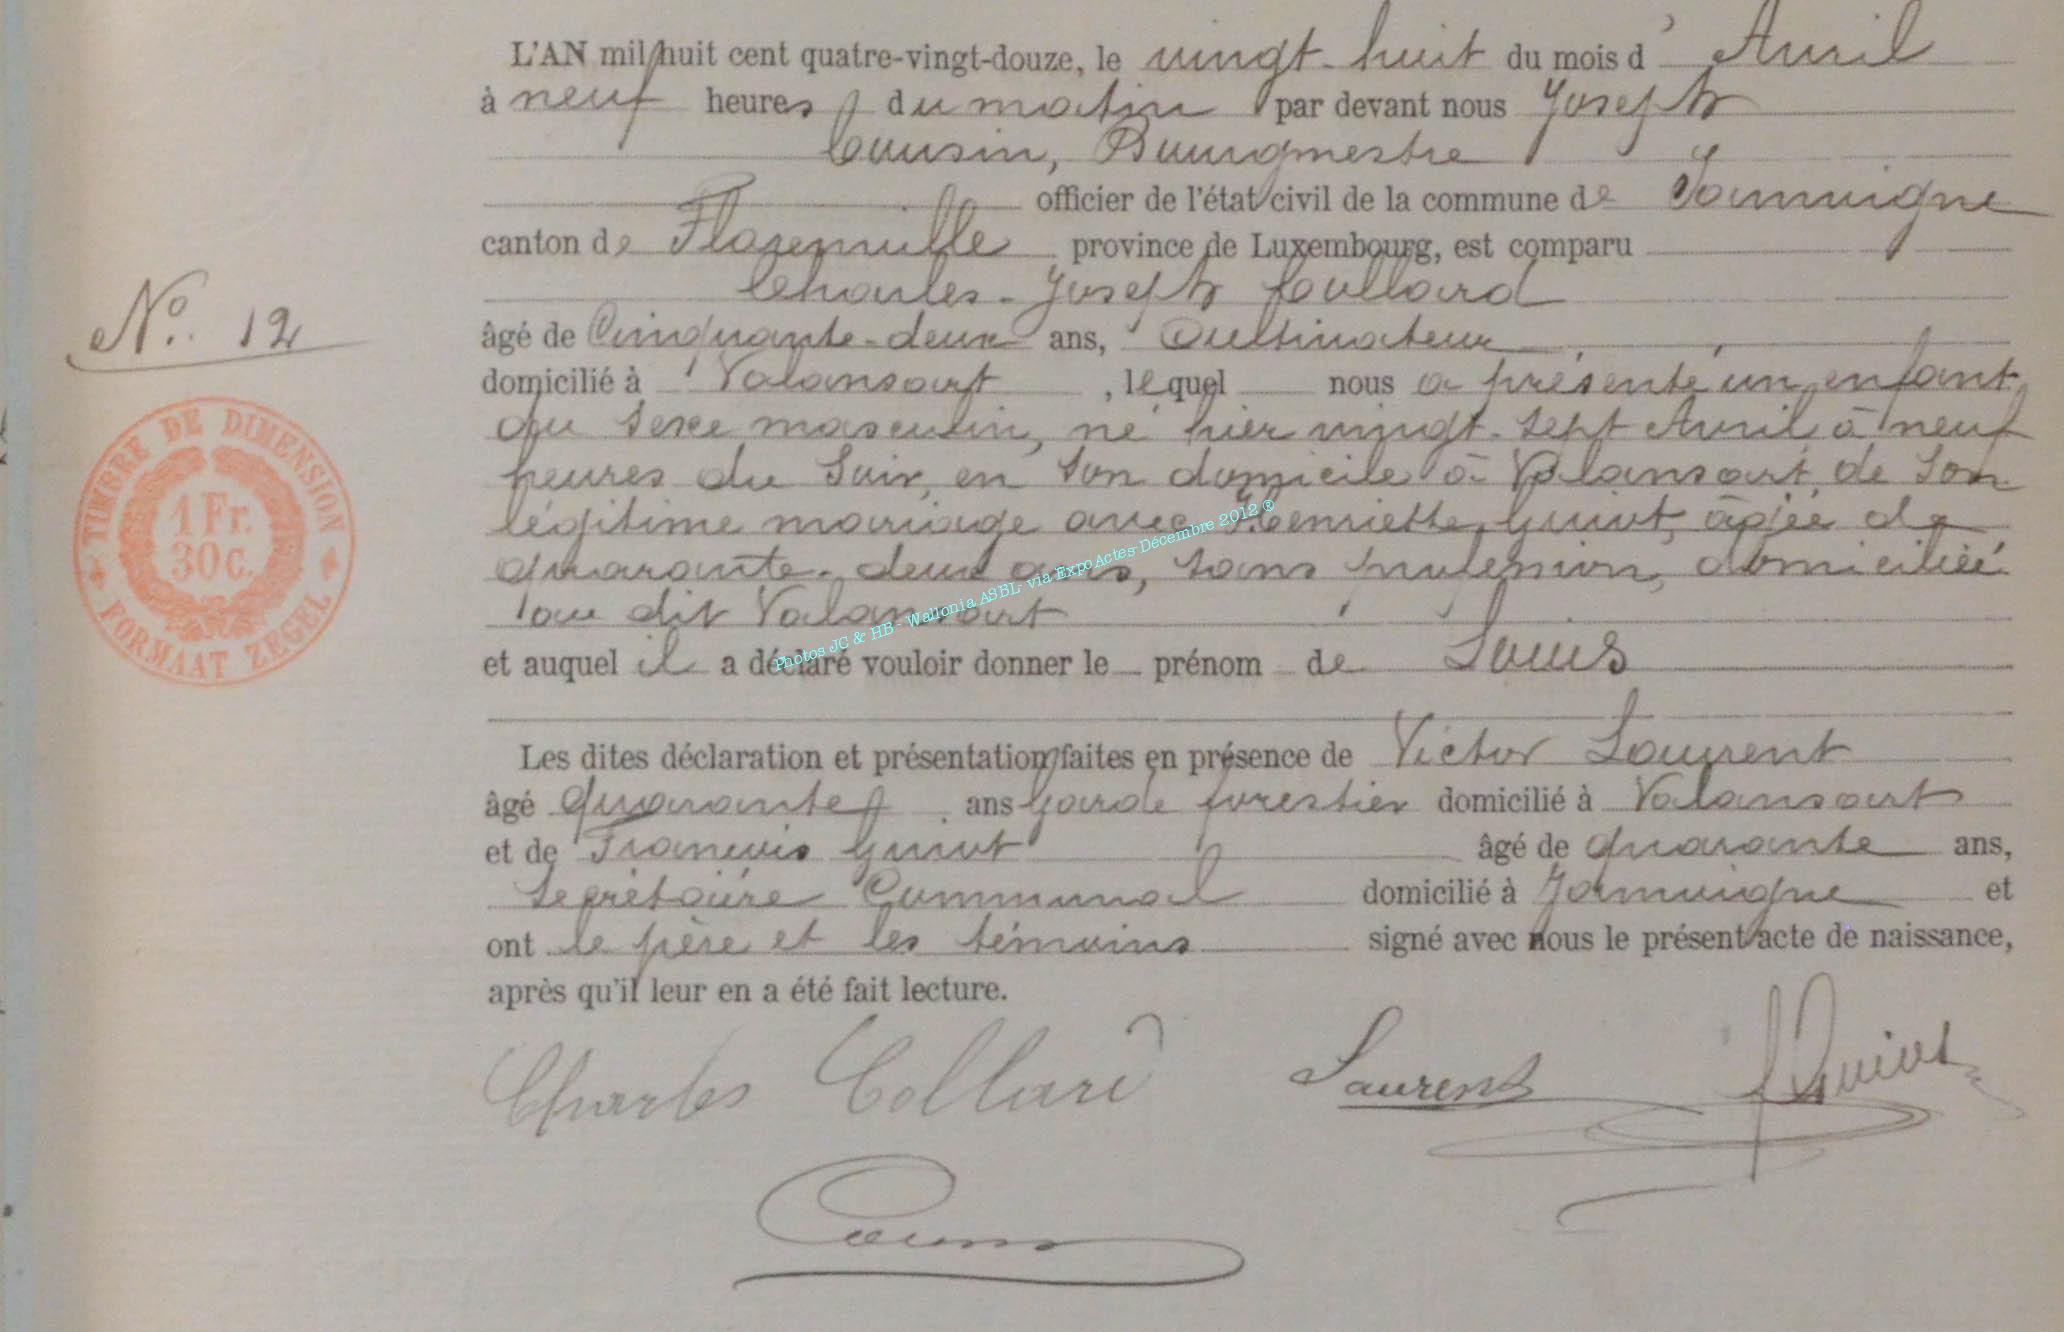 L'AN mil huit cent quatre-vingt-douze, le vingt-huit du mois d' Avril
à neuf heures du matin par devant nous Joseph
Cousin, Bourgmestre
officier de l'état civil de la commune de Jamoigne
canton de Florenville province de Luxembourg, est comparu
Charles-Joseph Collard
N° 12
âgé de Cinquante-deux ans, Cultivateur
domicilié à Valansart, lequel nous a présenté un enfant
du sexe masculin, né hier vingt-sept Avril à neuf
heures du soir, en son domicile à Valansart, de son
légitime mariage avec Henriette Guiot, âgée de
quarante-deux ans, sans profession, domiciliée
au dit Valansart
et auquel il a déclaré vouloir donner le prénom de Louis
TIMBRE DE DIMENSION
1 Fr.
30 c.
FORMAAT ZEGEL
Photos JC & HB - Wallonia ASBL- via ExpoActes-Décembre 2012 ®
Les dites déclaration et présentation faites en présence de Victor Laurent
âgé quarante ans Garde forestier domicilié à Valansart
et de François Guiot âgé de quarante ans,
Secrétaire Communal domicilié à Jamoigne et
ont le père et les témoins signé avec nous le présent acte de naissance,
après qu'il leur en a été fait lecture.
Charles Collard Laurent J Guiot
Cousin